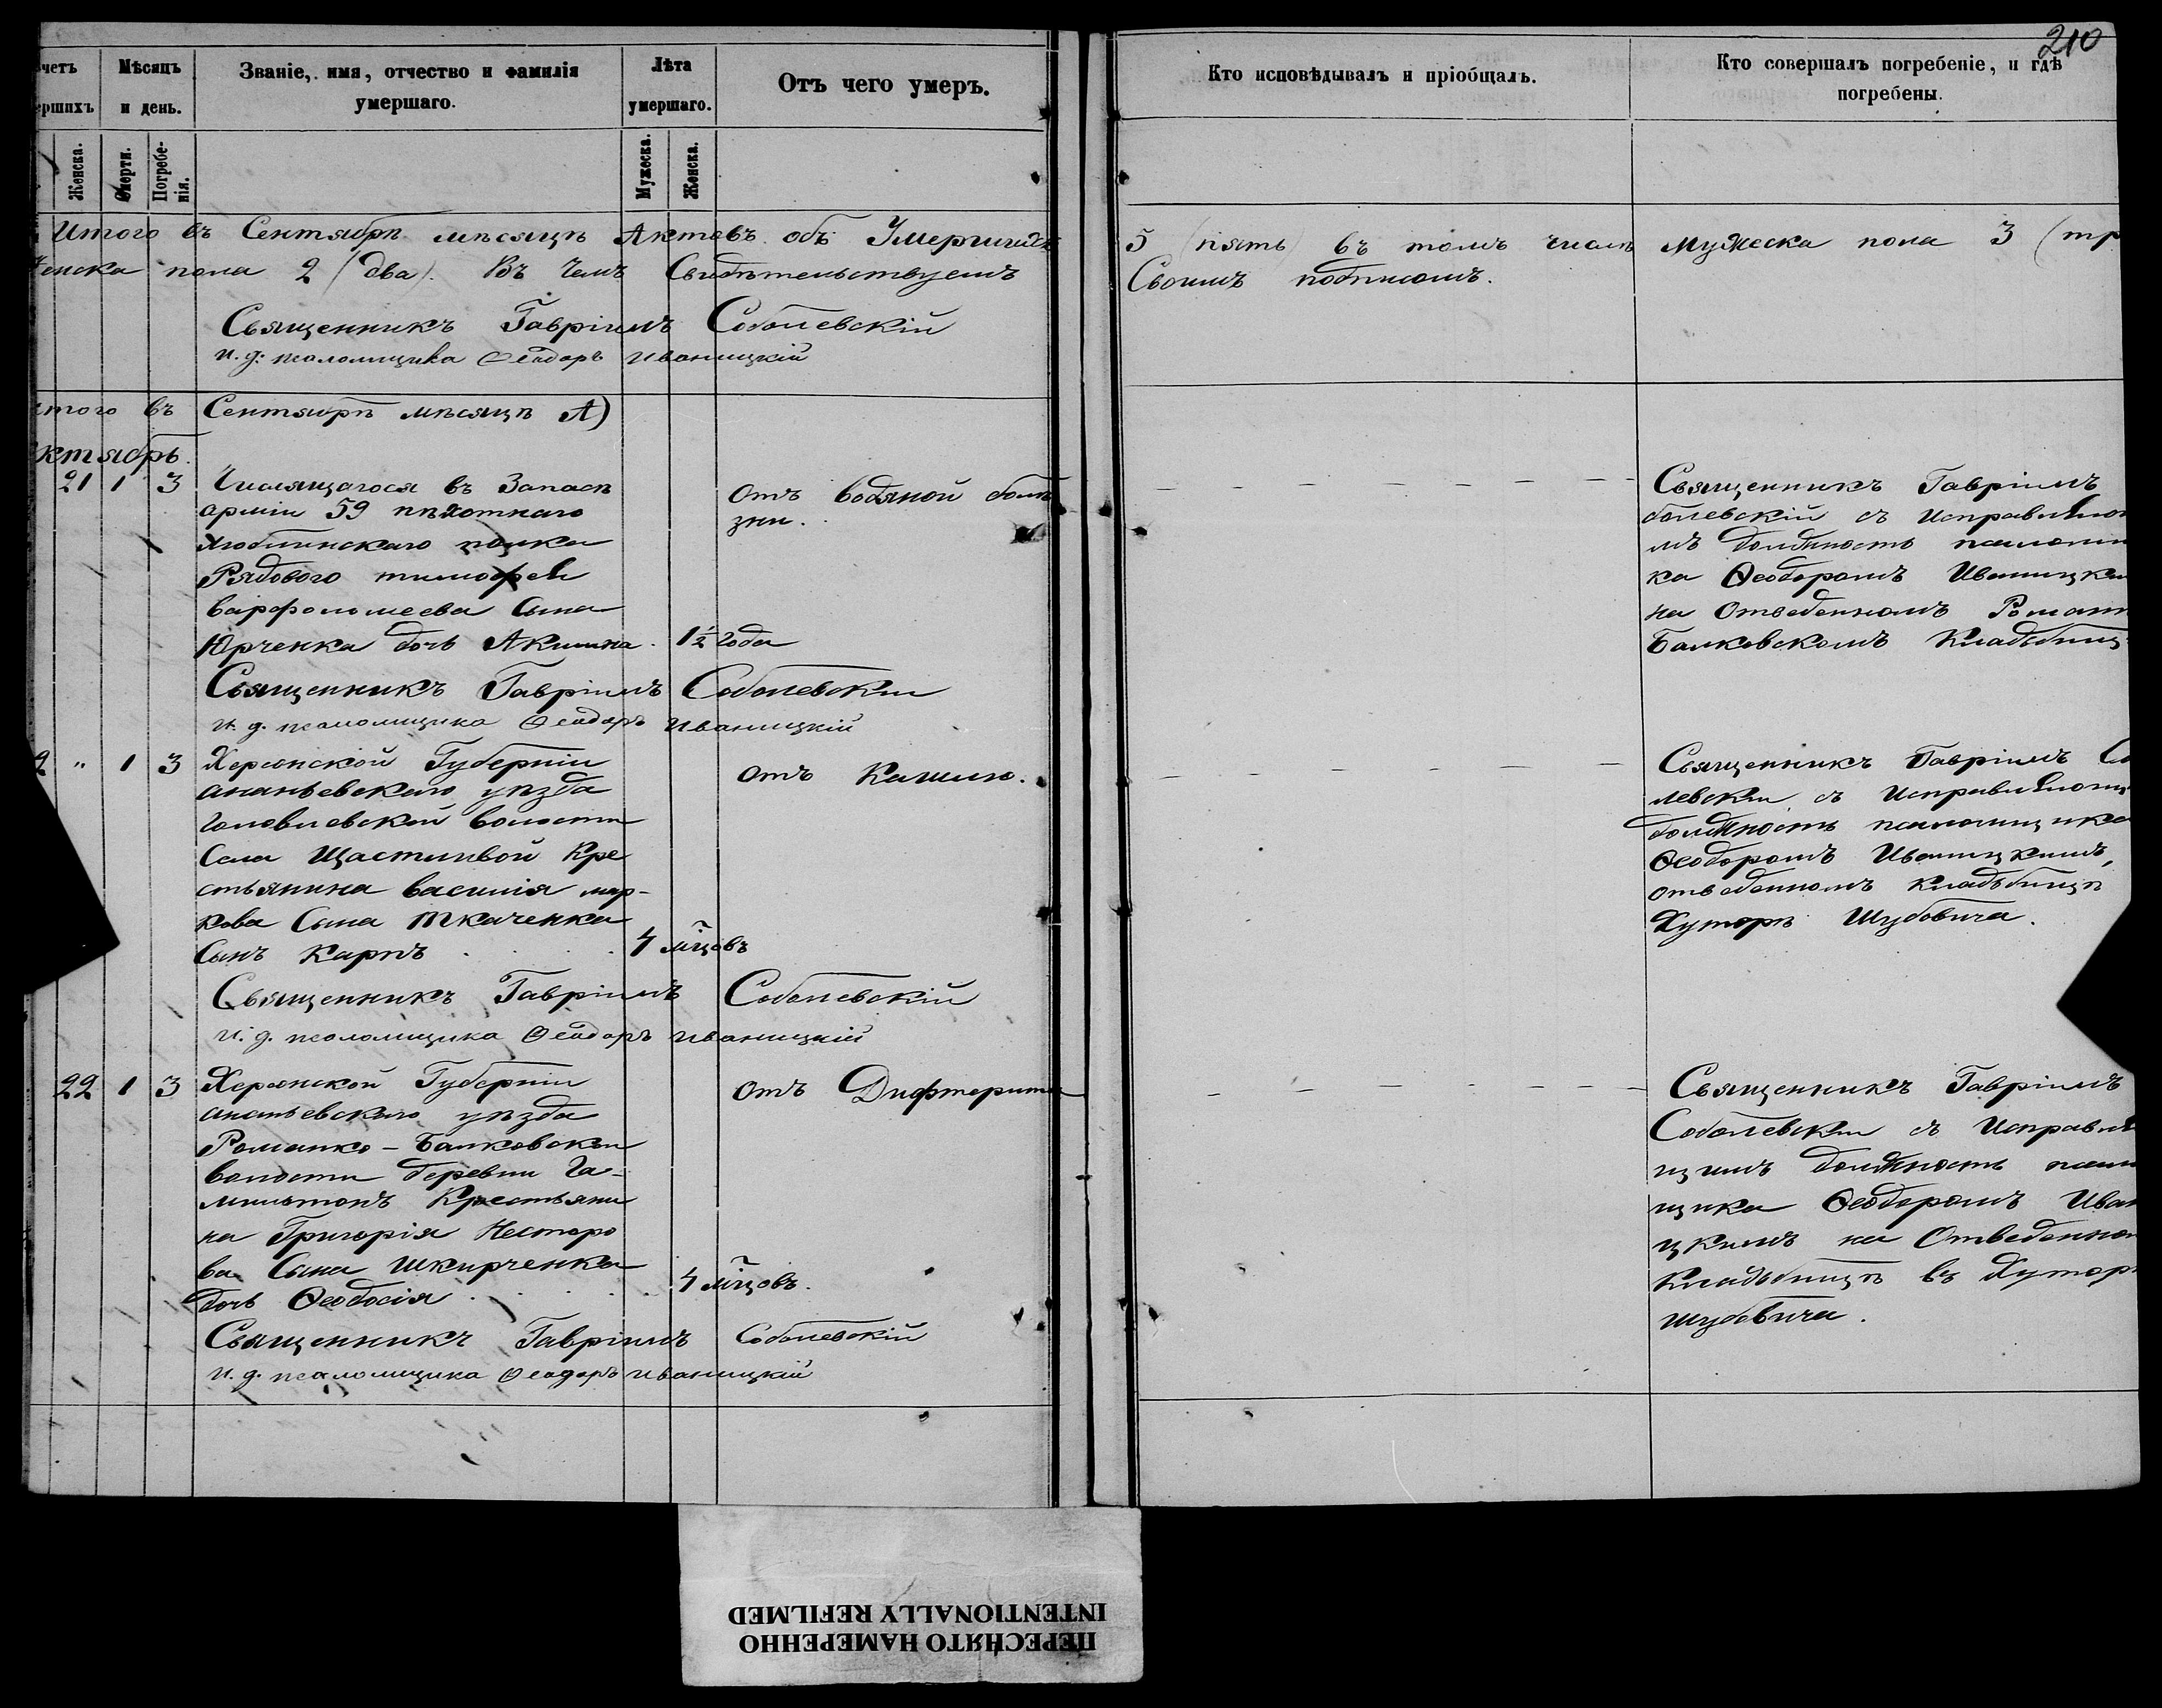 210
четъ
ершихъ
Мѣсяцъ
и день.
Званіе, имя, отчество и фамилія
умершаго.
Лѣта
умершаго.
Отъ чего умеръ.
Кто исповѣдывалъ и пріобщалъ.
Кто совершалъ погребеніе, и гдѣ
погребены.
Женска.
Смерти.
Погребе-
нія.
Мужеска.
Женска.
Итого въ Сентябрѣ мѣсяцѣ Актовъ объ Умершихъ 5 (пять) въ томъ числѣ мужеска пола 3 (тр
Женска пола 2 (два). Въ чемъ Свидѣтельствуемъ Своимъ подписомъ.
Священникъ Гавріилъ Соболевскій
и. д. псаломщика Ѳеодоръ Иваницкій
итого въ Сентябрѣ мѣсяцѣ А)
ктябрь.
21 1 3 Числящагося въ Запасѣ
арміи 59 пѣхотнаго
Люблинскаго полка
Рядового тимофея
варфоломеева Сына
Юрченка дочь Акилина. 1½ года
отъ водяной болѣ
зни.
Священникъ Гавріилъ
болевскій съ исправляю
мъ должность псаломщ
ка Ѳеодоромъ Иваницки
на Отведенномъ Роман
Балковскомъ Кладбищ
Священникъ Гавріилъ Соболевскій
и. д. псаломщика Ѳеодоръ иваницкій
2 " 1 3 Херсонской Губерніи
ананьевскаго уѣзда
головлевской волости
Села Щастливой Кре
стьянина василія мар-
кова Сына Ткаченка
Сынъ Карпъ . . . . 4 мцовъ
отъ Кашлю.
Священникъ Гавріилъ Со
левскій съ Исправляющ
должность псаломщика
Ѳеодоромъ Иваницкимъ,
отведенномъ кладбищѣ
Хуторѣ Шубовича.
Священникъ Гавріилъ Соболевскій
и. д. псаломщика Ѳеодоръ иваницкій
22 1 3 Херсонской Губерніи
ананьевскаго уѣзда
Романко-Балковской
волости деревни Га-
мильтонъ Крестьяни
на Григорія Несторо
ва Сына Шкирченка
дочь Ѳеодосія . . . . 4 мцовъ.
отъ Дифтерита
Священникъ Гавріилъ
Соболевскій съ Исправля
щимъ должность псалом
щика Ѳеодоромъ Иван
цкимъ на Отведенном
Кладбищѣ въ Хуторѣ
Шубовича.
Священникъ Гавріилъ Соболевскій
и. д. псаломщика Ѳеодоръ иваницкій
ПЕРЕСНЯТО НАМЕРЕННО
INTENTIONALLY REFILMED